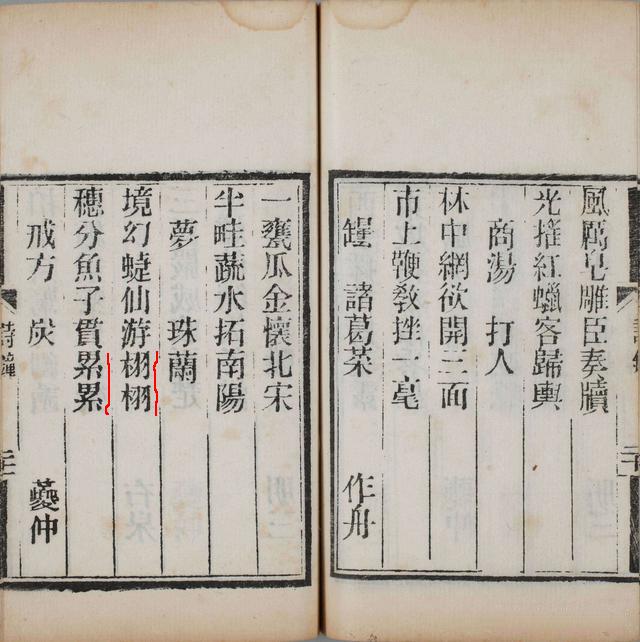 風厲皂雕臣奏牘
光摧紅蠟客歸輿
商湯　打人
林中網欲開三面
市上鞭教挫一毫
罐　諸葛菜　作舟
一甕瓜金懷北宋
半畦蔬水拓南陽
夢　珠蘭
境幻蜨仙游栩栩
穗分魚子貫累累
戒方　炭　夔仲
詩鐘